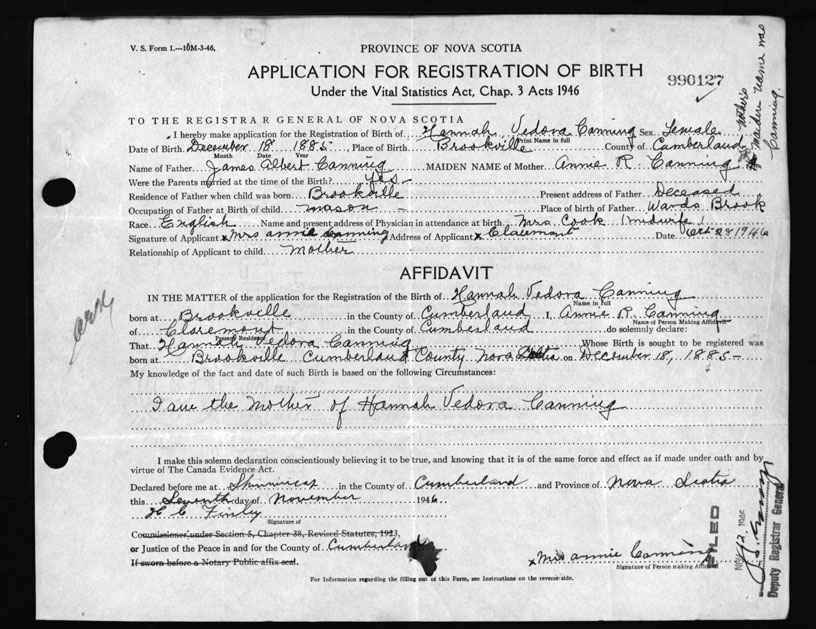 V. S. Form 1.—10M-3-46,
PROVINCE OF NOVA SCOTIA
APPLICATION FOR REGISTRATION OF BIRTH
990127
Under the Vital Statistics Act, Chap. 3 Acts 1946
Mother's maiden name was Canning.
TO THE REGISTRAR GENERAL OF NOVA SCOTIA
I hereby make application for the Registration of Birth of Hannah Vedora Canning Sex Female
Print Name in full
Date of Birth December 18 1885 Place of Birth Brookville County of Cumberland
Month Date Year
Name of Father James Albert Canning MAIDEN NAME of Mother Annie R. Canning
Were the Parents married at the time of the Birth? Yes-
Residence of Father when child was born Brookville Present address of Father Deceased
Occupation of Father at Birth of child mason - Place of birth of Father Wards Brook
Race English Name and present address of Physician in attendance at birth Mrs Cook (midwife)
Signature of Applicant x Mrs annie canning Address of Applicant x Claremont Date Oct 28 1946
Relationship of Applicant to child mother
AFFIDAVIT
IN THE MATTER of the application for the Registration of the Birth of Hannah Vedora Canning
Name in full
born at Brookville in the County of Cumberland I, Annie R. Canning
Name of Person Making Affidavit
of Claremont in the County of Cumberland do solemnly declare:
Present Residence
That Hannah Vedora Canning Whose Birth is sought to be registered was
born at Brookville Cumberland County Nova Scotia on December 18, 1885-
My knowledge of the fact and date of such Birth is based on the following Circumstances:
I am the mother of Hannah Vedora Canning
I make this solemn declaration conscientiously believing it to be true, and knowing that it is of the same force and effect as if made under oath and by
virtue of The Canada Evidence Act.
Declared before me at in the County of Cumberland and Province of Nova Scotia
this Seventh day of November 1946
H C Finley
Signature of
Commissioner under Section 5, Chapter 38, Revised Statutes, 1923,
or Justice of the Peace in and for the County of Cumberland
If sworn before a Notary Public affix seal.
x Mrs annie Canning
Signature of Person making Affidavit
For Information regarding the filling out of this Form, see Instructions on the reverse side.
FILED
NOV 12 1946
Deputy Registrar General